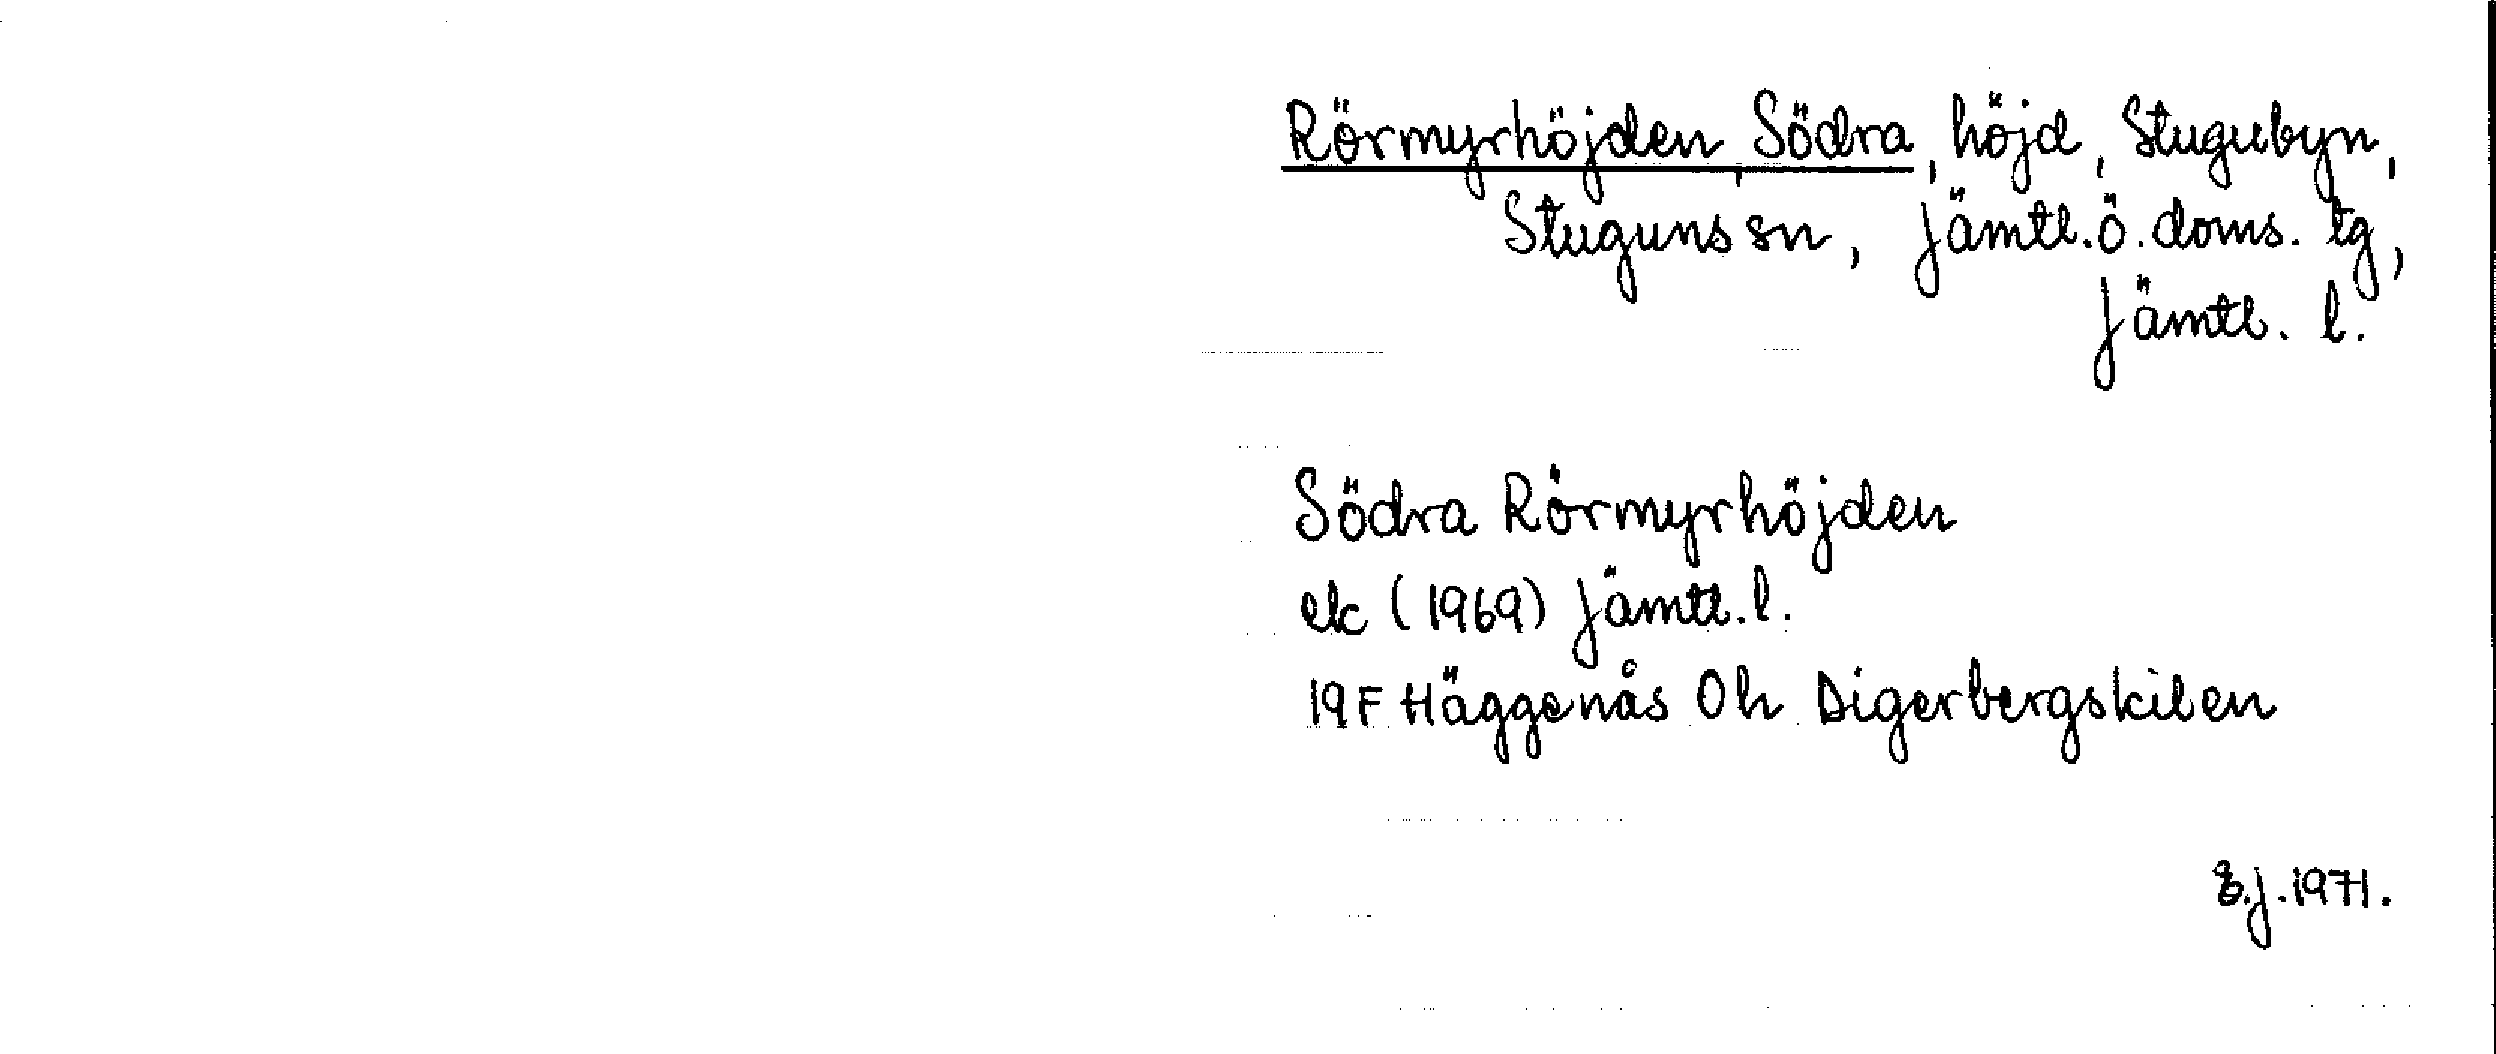 Rörmyrhöjden, Södra, höjd, Stugubyn,
Stuguns sn, Jämtl. ö. doms. tg,
Jämtl. l.
Södra Rörmyrhöjden
ek (1969) Jämtl. l.
19F Häggenås Oh Digerbergskilen
J. 1971.